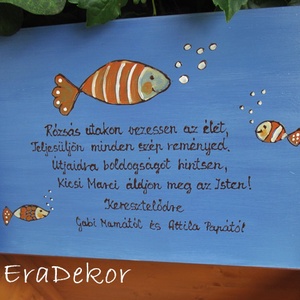 Rózsás utakon vezessen az élet,
Teljesüljön minden szép reményed.
Utjaidra boldogságot hintsen,
Kicsi Marci áldjon meg az Isten!
Keresztelődre
Gabi Mamától és Attila Papától
EraDekor